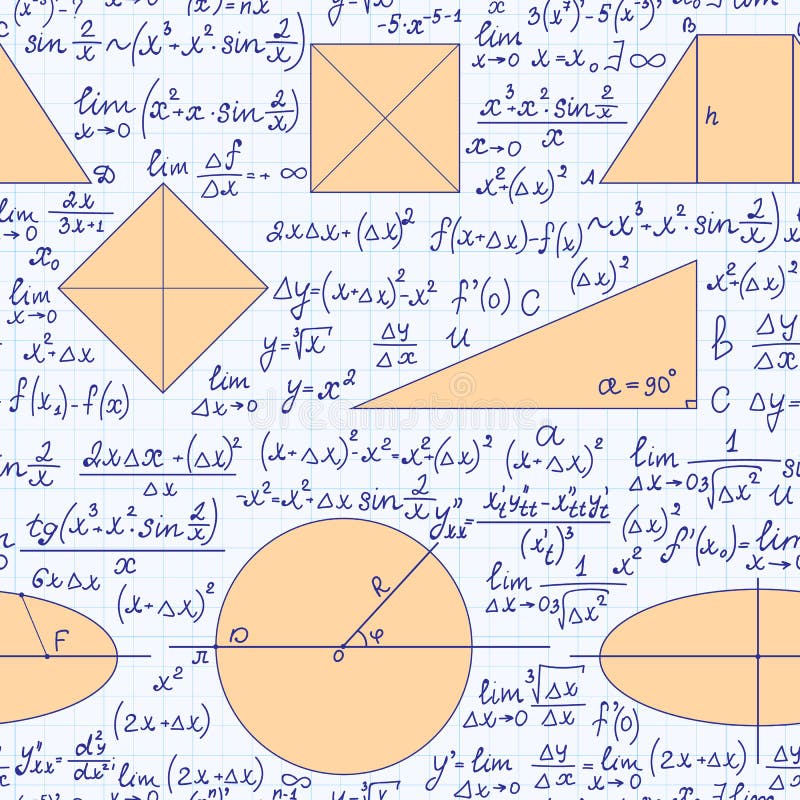 y=√x
-5·x⁻⁵⁻¹
3(x⁷)'-5(x⁻³)'
sin 2/x ~(x³+x²·sin 2/x)
lim x→0 x=x₀ ∃ ∞
B
lim x→0 (x²+x·sin 2/x)
(x³+x²·sin 2/x)/x
x→0
h
lim Δf/Δx =+∞
D
x²+(Δx)²
A
lim x→0 2x/(3x+1)
2xΔx+(Δx)²
f(x+Δx)-f(x)
~x³+x²·sin 2/x)
x₀
(Δx)²
x²+(Δx)²
lim x→0
Δy=(x+Δx)²-x²
f'(0)
C
x²+Δx
y=³√x
Δy/Δx
u
b
Δy/Δx
f(x₁)-f(x)
lim Δx→0
y=x²
α=90°
C
Δy=
a
in 2/x
(2xΔx+(Δx)²)/Δx
(x+Δx)²-x²=x²+(Δx)²
(x+Δx)²
lim Δx→0 1/³√Δx²
u
-x²=x²+Δx sin 2/x
tg(x³+x²·sin 2/x)/x
y''xx=(x't y''tt-x''tt y't)/(x't)³
(Δx)²
x²
f'(x₀)=lim x→0
6xΔx
(x+Δx)²
lim Δx→0 1/³√Δx²
R
F
D
π
O
φ
x²
lim Δx→0 ³√Δx/Δx
(2x+Δx)
f'(0)
y''xx=d²y/dx²;
lim (2x+Δx)
∞
y'=lim Δx→0 Δy/Δx =lim x→0 (2x+Δx)
Δy/Δx
n-1
y=³√x